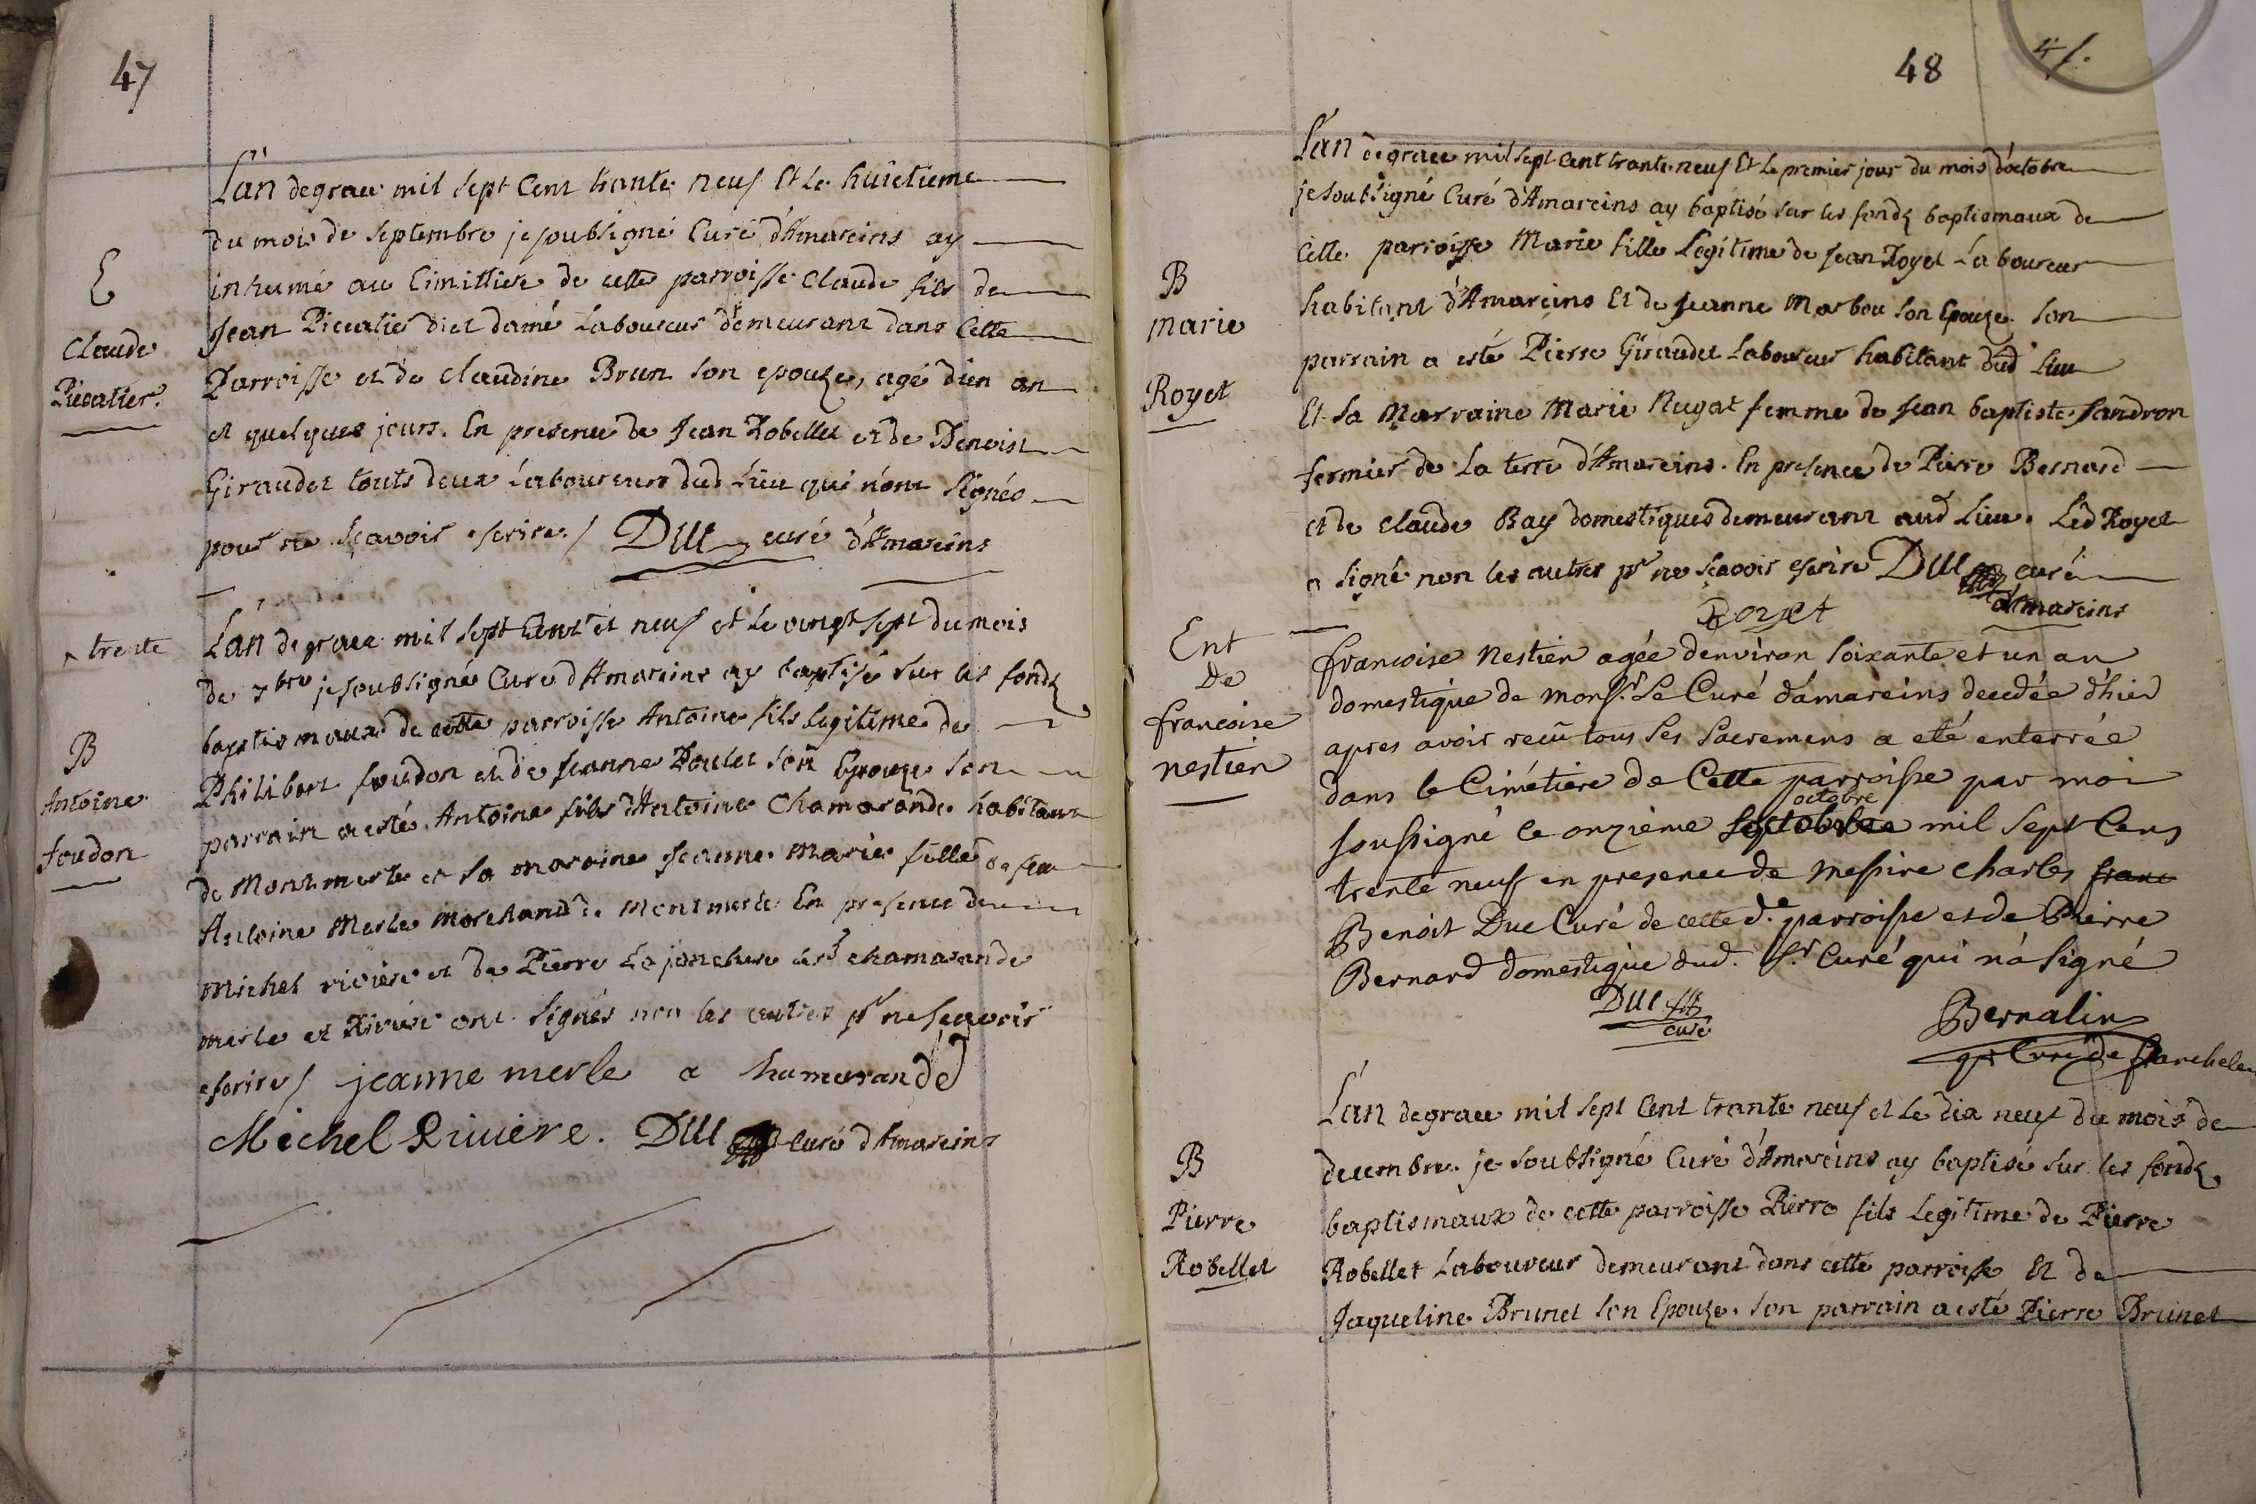 47
L'an degrace mil sept Cent trante neuf Et Le huictieme
du mois de septembre je soubsigné Curé d'Amareins ay
inhumé au Cimittiere de cette parroisse Claude fils de
E
Jean Picatier dict damé Laboureur demeurant dans Cette
Claude
Parroisse et de Claudine Brun son epouze, agé d'un an
Picatier.
et quelques jours. En presence de Jean Robellet et de Benoist
Giraudet touts deux Laboureurs dud Lieu qui n'ont signés
pour ne sçavoir escrire / Duc curé d'Amareins
^ trente
L'an de grace mil sept Cent ^ et neuf et Le vingt sept du mois
de 7bre je soubsigné Curé d'Amareins ay baptisé sur les fonds
baptismaux de cette parroisse Antoine fils legitime de
B
Antoine
foudon
Philibert foudon et de Jeanne Poulet son Epouze son
parrain a esté Antoine fils d'Antoine Chamarande habitant
de Montmerle et sa maraine Jeanne Marie fille de feu
Antoine Merle Marchand de Montmerle En presence de
Michel riviere et de Pierre La jonchere lesd chamarande
merle et Riviere ont signés non les autres pr ne sçavoir
escrire / jeanne merle a hamarande
Michel Riviere. Duc curé d'Amareins
48
L'an de grace mil sept Cent trante neuf Et Le premier jour du mois d'octobre
je soubsigné Curé d'Amareins ay baptisé sur les fonds baptismaux de
Cette parroisse Marie fille Legitime de Jean Royet Laboureur
B
marie
Royet
habitant d'Amareins Et de Jeanne Marbou son Epouze son
parrain a esté Pierre Giraudet Laboureur habitant dud Lieu
Et sa Marraine Marie Nugat femme de Jean baptiste Sandron
fermier de La terre d'Amareins. En presence de Pierre Bernard
et de Claude Bay domestiques demeurant aud Lieu. Led Royet
a signé non les autres pr ne sçavoir escrire Duc curé
d'Amareins
Royet
Ent
De
francoise
nestien
francoise Nestien agée d'environ soixante et un an
domestique de monsr. Le Curé d'amareins decedée d'hier
apres avoir recû tous Ses Sacremens a eté enterrée
dans le Cimétiere de Cette parroisse par moi
octobre
soussigné ce onzième mil sept Cens
trente neuf en presence de Messire Charles franc
Benoit Duc Curé de cette d.e parroisse et de Pierre
Bernard domestique dud. Sr. Curé qui n'a signé
Duc
curé
Bernalin
Curé de
L'an degrace mil sept Cent trante neuf et Le dix neuf du mois de
decembre je soubsigné Curé d'Amareins ay baptisé sur les fonds
B
Pierre
Robellet
baptismaux de cette parroisse Pierre fils Legitime de Pierre
Robellet Laboureur demeurant dans cette parroisse Et de
Jaqueline Brunet son Epouze. son parrain a esté Pierre Brunet